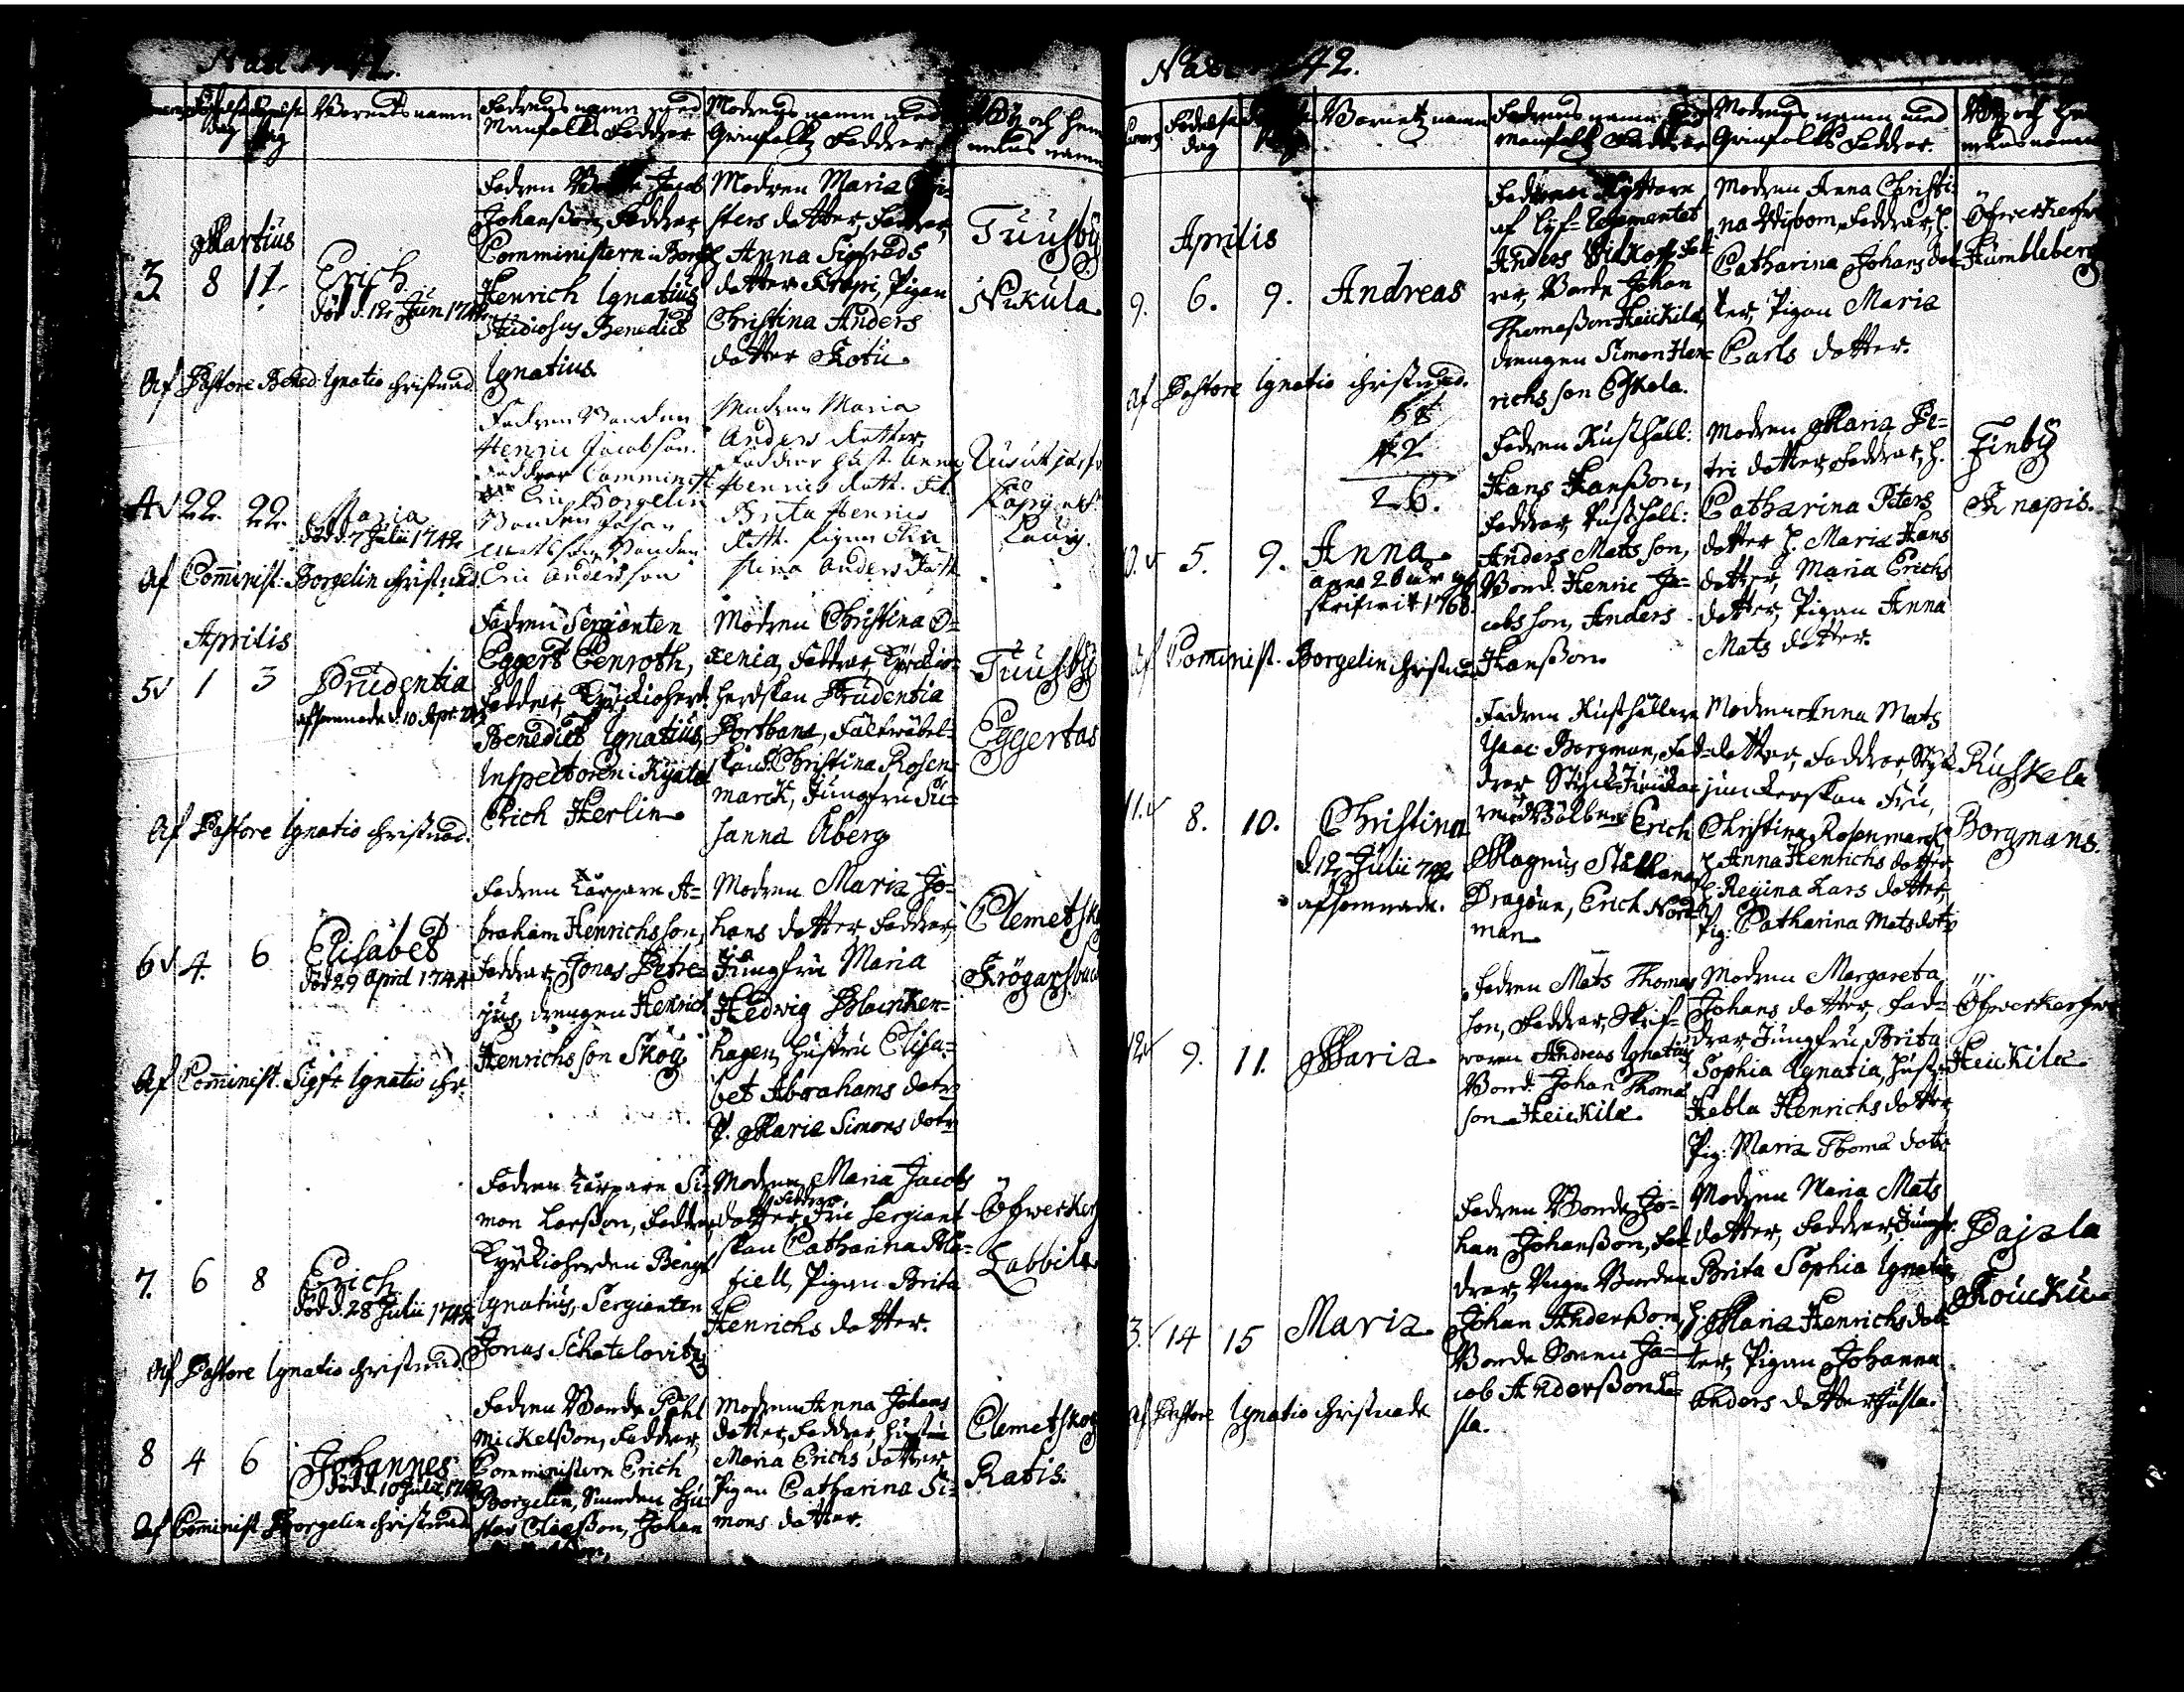 42.
Födelse dag
Barnets namn
Fadrens namn med Manfolks Faddrar
Modrens namn med Qvinfolks Faddrar
By och hem-
mans namn
Martius
3. 8 11
Erich
död d. 12 Jun 1742
Fadren Jacob
Johansson, Faddrar
Comministern i Borgå
Henrich Ignatius
Studiosus Benedict
Ignatius.
Modren Maria
sters dotter, Faddrar,
Anna Sigfreds
dotter Krapi, Pigan
Christina Anders
dotter Kotu.
Tuusby
Nikula.
Af Pastore Bened. Ignatio christnad
4 22. 22.
Maria
död d. 7 Julii 1742
Fadren Bonden
Henric Jacobson.
Faddrar Comminist.
Eric Borgelin
Bonden Johan
Mattsson Bonden
Eric Andersson
Modren Maria
Anders dotter,
Faddrar hust. Anna
Henrics dott.
Brita Henrics
dott. Pigan Chri
stina Anders dott
Af Comminist. Borgelin christnad
Aprilis
5 1 3
Prudentia
afsomnade d. 10 Apr.
Fadren Sergianten
Eggert Cenroth,
Faddrar, Kyrckioherd.
Benedict Ignatius,
Inspectoren i Kyala
Erich Herlin.
Modren Christina O-
xenia, Faddrar, Kyrckio-
herdskan Prudentia
Portbana, Fältwäbel-
skan Christina Rosen-
marck, Jungfru Su-
sanna Åberg
Tuusby
Eggertas
Af Pastore Ignatio christnad.
6 4. 6
Elisabet
död 29 April 1744
Fadren Torpare A-
braham Henrichsson,
Faddrar, Jonas Petre-
jus, drengen Henrich
Henrichsson Skog
Modren Maria Jo-
hans dotter, Faddrar,
Jungfru Maria
Hedwig Blanken-
hagen, hustru Elisa-
bet Abrahams dott.
P. Maria Simons dott.
Clemetsko
Krögars
Af Comminist. Sigf. Ignatio chr.
7. 6 8
Erich
död d. 28 Julii 1742
Fadren Torpare Si-
mon Larsson, Faddrar,
Kyrckioherden Bengt
Ignatius, Sergianten
Jonas Schatelovitz
Modren Maria Jacobs
dotter, Faddrar, Fru Sergiant
skan Catharina
fiell, Pigan Brita
Henrichs dotter.
Öfwerker
Labbila
Af Pastore Ignatio christnad
8 4 6
Johannes
död d. 10 Julii 1742
Fadren Bonde Påhl
Mickelsson, Faddrar,
Comministern Erich
Borgelin,
Claesson, Johan
Modren Anna Johans
dotter, Faddrar, hustru
Maria Erichs dotter
Pigan Catharina Si-
mons dotter.
Clemetskog
Ratis.
Af Comminist Borgelin christnad
42.
Födelse dag
Barnets namn
Fadrens namn med Manfolks Faddrar
Modrens namn med Qvinfolks Faddrar.
By och hem-
mans namn
Aprilis
9. 6. 9. Andreas
Fadren Ryttare
af Lif-Regementet
Anders
rar, Bonde Johan
Thomasson Heickilä,
drengen Simon Hen-
richsson Eskola.
Modren Anna Christi-
na Wisbom, Faddrar, h.
Catharina Johans dot-
ter, Pigan Maria
Carls dotter.
Öfwerkerfw
Humbleberg
Af Pastore Ignatio christnad.
68
42
26.
5. 9. Anna.
anno 26 år
1768.
Fadren Rusthåll:
Hans Hansson,
Faddrar, Rusthåll:
Anders Matsson,
Bond. Henric Ja-
cobsson, Anders
Hansson.
Modren Maria Pe-
tri dotter, Faddrar, h.
Catharina Peters
dotter h. Maria Hans
dotter, Maria Erichs
dotter, Pigan Anna
Mats dotter.
Finby
Knapis.
Af Comminist. Borgelin christnad
11. 8. 10. Christina
d. 12 Julii 742
afsomnade.
Fadren Rusthållare
Isaac Borgman, Fad-
drar Styck-Junckaren
Wälbne Erich
Magnus Stålhana
Dragoun, Erich Nord-
man.
Modren Anna Mats
dotter, Faddrar, Styck
junckerskan Fru,
Christina Rosenmarck,
h. Anna Henrichs dotter,
h. Regina Lars dotter,
Pig: Catharina Mats dott.
Ruskela
Borgmans.
12 9. 11. Maria.
Fadren Mats Thomas
son, Faddrar, Skrif-
waren Andreas Ignatius
Bond. Johan Thomas
son Heickilä.
Modren Margareta
Johans dotter, Fad-
drar Jungfru, Brita
Sophia Ignatia, hust.
Hebla Henrichs dotter
Pig: Maria Thomæ dott.
Öfwerkerfw
Heickilä.
3. 14 15 Maria.
Fadren Bonde Jo-
han Johansson, Fad-
drar, Unga Bonden
Johan Andersson,
Bonde Sonen Ja-
cob Andersson
sla.
Modren Maria Mats
dotter, Faddrar, Jungfr.
Brita Sophia Ignatia,
h. Maria Henrichs dot-
ter, Pigan Johanna
Anders dotter
Pajala
Koucku
Af Pastore Ignatio christnade